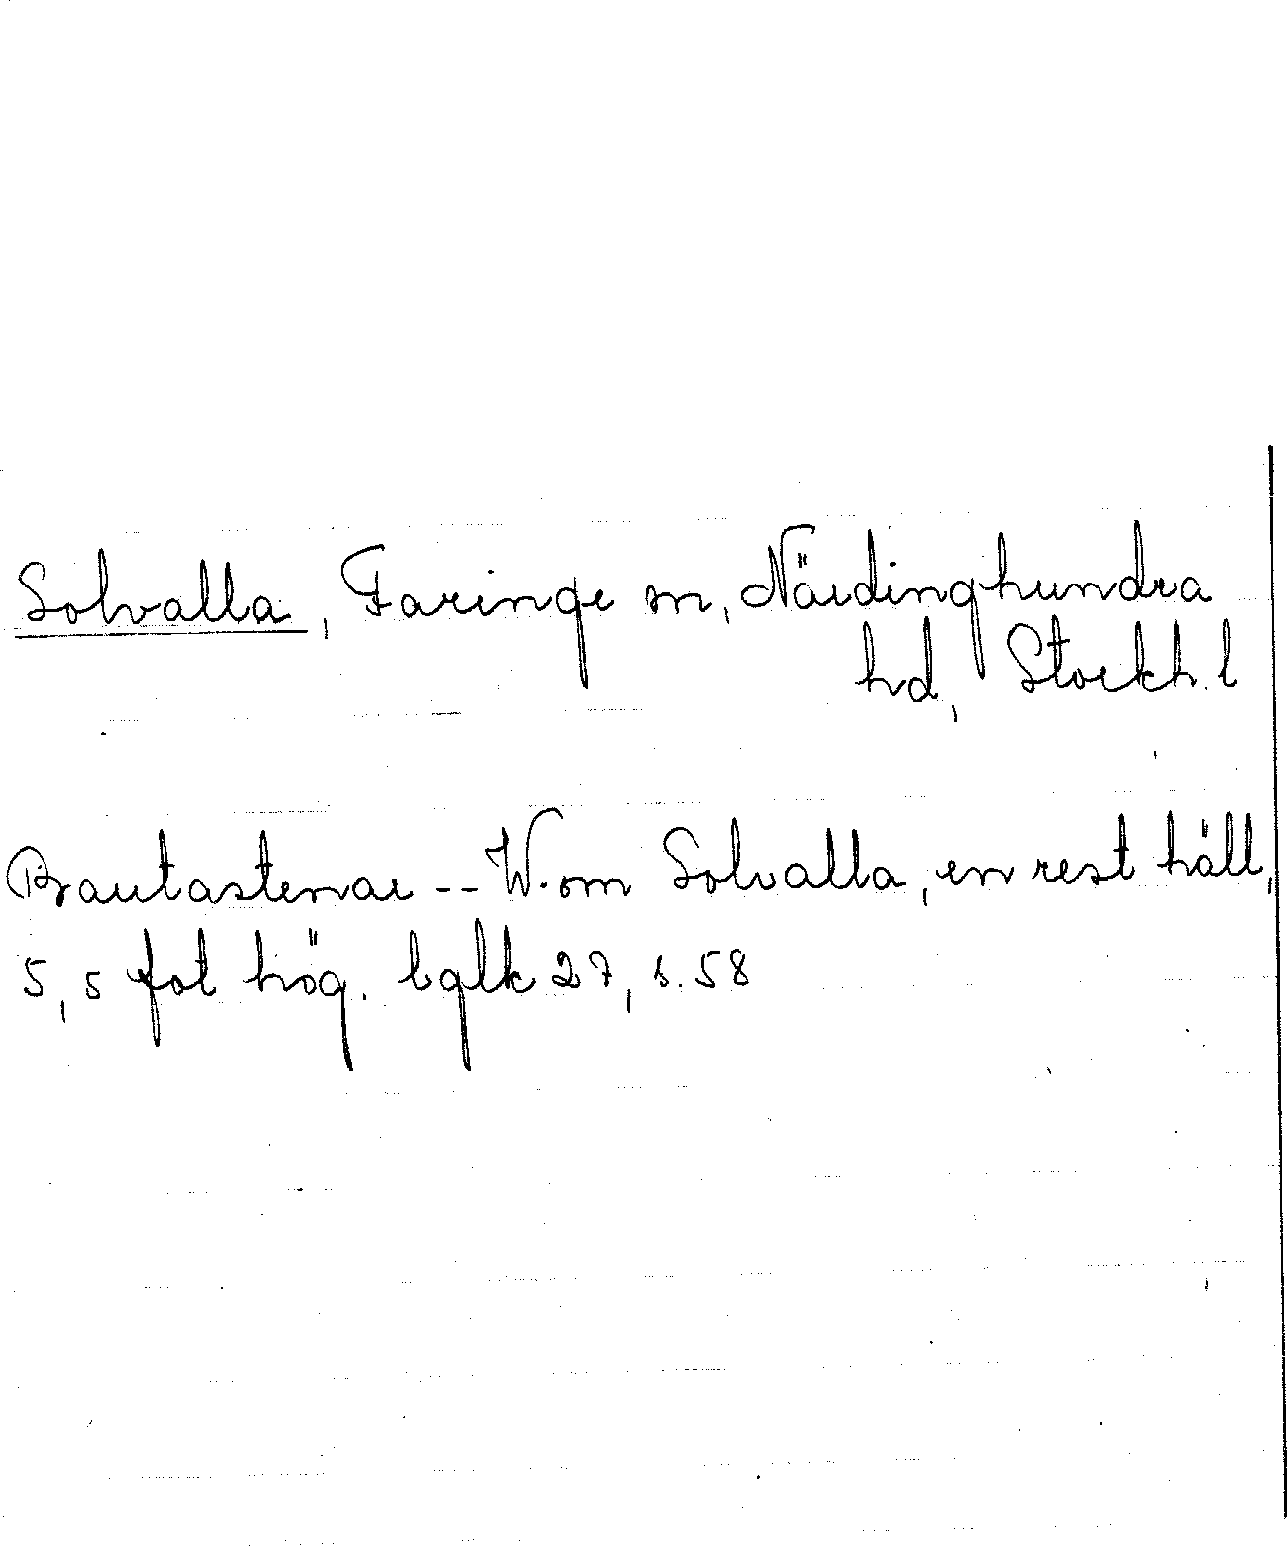 Solvalla, Faringe sn, Närdinghundra
hd, Stockh. l
Bautastenar -- W. om Solvalla, en rest häll,
5,5 fot hög. bglk 27, s. 58